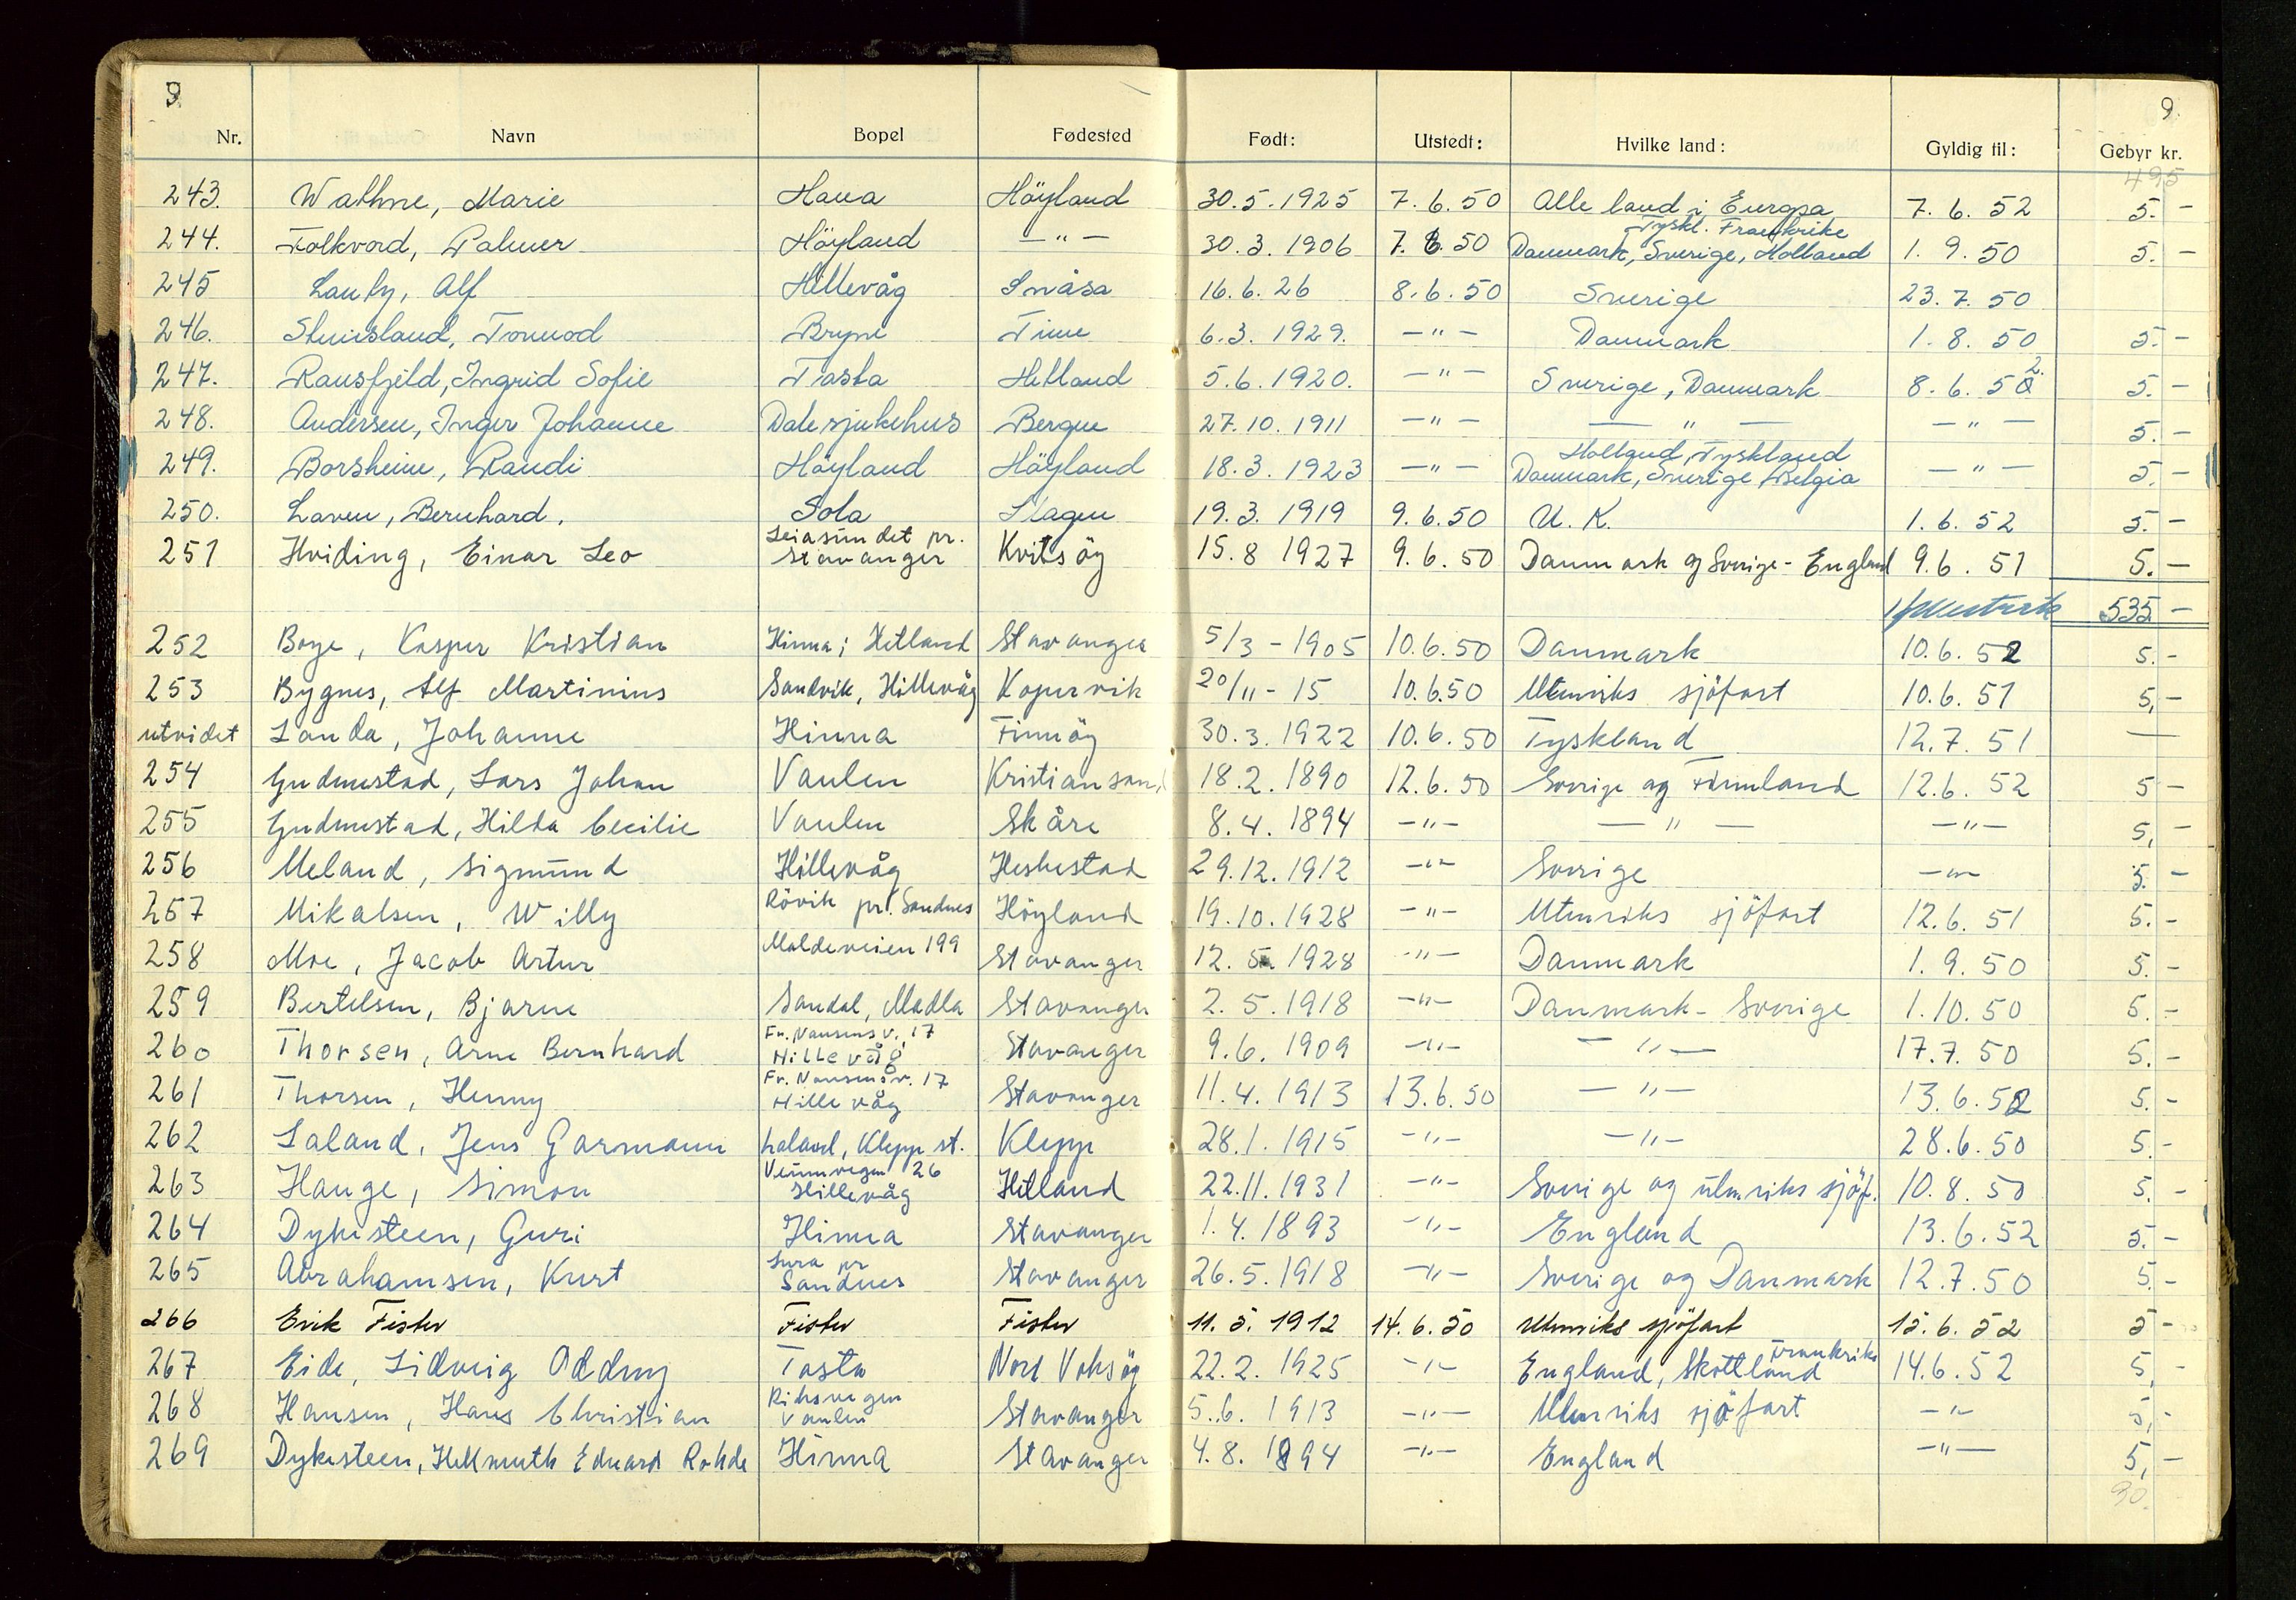 9 9.
Nr. Navn Bopel Fødested Født: Utstedt: Hvilke land: Gyldig til: Gebyr kr.
495
243. Wathne, Marie Hana Höyland 30.5.1925 7.6.50 Alle land i Europa 7.6.52 5.-
Tyskl. Frankrike
244. Folkvord, Palmer Höyland -"- 30.3.1906 7.6.50 Danmark, Sverige, Holland 1.9.50 5.-
245 Lauky, Alf Hillevåg Snåsa 16.6.26 8.6.50 Sverige 23.7.50
246. Stuisland, Tormod Bryne Time 6.3.1929. -"- Danmark 1.8.50 5.-
247. Rausfjeld, Ingrid Sofie Tasta Hetland 5.6.1920. -"- Sverige, Danmark 8.6.52 5.-
248. Andersen, Inger Johanne Dale sjukehus Bergen 27.10.1911 -"- -"- -"- 5.-
Holland, Tyskland
249. Borsheim, Randi Höyland Höyland 18.3.1923 -"- Danmark, Sverige, Belgia -"- 5.-
250. Laven, Bernhard. Sola Slagen 19.3.1919 9.6.50 U.K. 1.6.52 5.-
Leiasundet pr.
251 Hviding, Einar Leo Stavanger Kvitsöy 15.8 1927 9.6.50 Danmark og Sverige - England 9.6.51 5.-
535 -
252 Boye, Kasper Kristian Hinna i Hetland Stavanger 5/3-1905 10.6.50 Danmark 10.6.52 5.-
253 Bygnes, Alf Martinius Sandvik, Hillevåg Kopervik 20/11-15 10.6.50 Utenriks sjöfart 10.6.51 5,-
utvidet Landa, Johanne Hinna Finnöy 30.3.1922 10.6.50 Tyskland 12.7.51 —
254 Gudmestad, Lars Johan Vaulen Kristiansand 18.2.1890 12.6.50 Sverige og Finnland 12.6.52 5-
255 Gudmestad, Hilda Cecilie Vaulen Skåre 8.4.1894 -"- -"- -"- 5,-
256 Meland, Sigmund Hillevåg Heskestad 29.12.1912 -"- Sverige -"- 5.-
257 Mikalsen, Willy Rövik pr. Sandnes Höyland 19.10.1928 -"- Utenriks sjöfart 12.6.51 5.-
258 Moe, Jacob Artur Maldeveien 199 Stavanger 12.5.1928 -"- Danmark 1.9.50 5.-
259 Bertelsen, Bjarne Sandal, Madla Stavanger 2.5.1918 -"- Danmark - Sverige 1.10.50 5.-
Fr. Nansensv. 17
260 Thorsen, Arne Bernhard Hillevåg Stavanger 9.6.1909 -"- -"- 17.7.50 5.-
Fr. Nansensv. 17
261 Thorsen, Henny Hillevåg Stavanger 11.4.1913 13.6.50 -"- 13.6.52 5.-
262 Laland, Jens Garmann Laland, Klepp st. Klepp 28.1.1915 -"- -"- 28.6.50 5.-
26
263 Hauge, Simon Hillevåg Hetland 22.11.1931 -"- Sverige og utenriks sjöf. 10.8.50 5.-
264 Dykesteen, Guri Hinna Stavanger 1.4.1893 -"- England 13.6.52 5.-
Lura pr
265 Abrahamsen, Kurt Sandnes Stavanger 26.5.1918 -"- Sverige og Danmark 12.7.50 5.-
266 Erik Fister Fister Fister 11.5.1912 14.6.50 Utenriks sjöfart 15.6.52 5-
Frankrike
267 Eide, Lidveig Oddny Tasta Nord Voksöy 22.2.1925 -"- England, Skottland 14.6.52 5,-
Riksvegen
268 Hansen, Hans Christian Vaulen Stavanger 5.6.1913 -"- Utenriks sjöfart -"- 5,-
269 Dykesteen, Hellmuth Eduard Rohde Hinna Stavanger 4.8.1894 -"- England -"- 5,-
90.